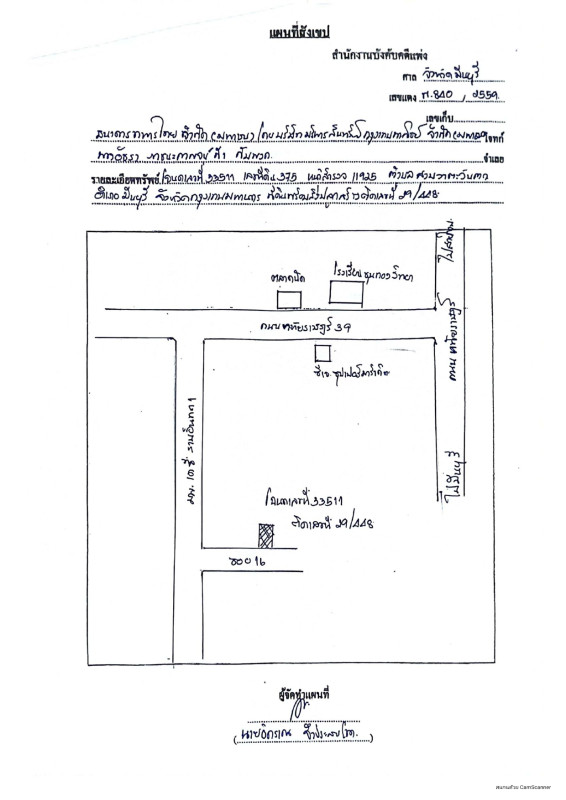 แผนที่สังเขป
สำนักงานบังคับคดีแพ่ง
ศาล จังหวัดมีนบุรี
เลขแดง ผ.840 / 2559
เลขเก็บ
ธนาคารทหารไทย จำกัด (มหาชน) โดยบริษัท บริหารสินทรัพย์ กรุงเทพพาณิชย์ จำกัด (มหาชน) โจทก์
ที่1 กับพวก จำเลย
รายละเอียดทรัพย์ โฉนดเลขที่ 33511 เลขที่ดิน 375 หน้าสำรวจ 11925 ตำบล สามวาตะวันตก
อำเภอ มีนบุรี จังหวัดกรุงเทพมหานคร ที่ดินพร้อมสิ่งปลูกสร้างติดเลขที่ 29/448
ตลาดนัด
โรงเรียน ชุมทองวิทยา
ถนน หทัยราษฎร์ 39
ซีเจ ซุปเปอร์มาร์เก็ต
ถนน หทัยราษฎร์
ไปมีนบุรี
มบ. เคซี รามอินทรา 1
โฉนดเลขที่ 33511
ติดเลขที่ 29/448
ซอย 16
ผู้จัดทำแผนที่
สแกนด้วย CamScanner